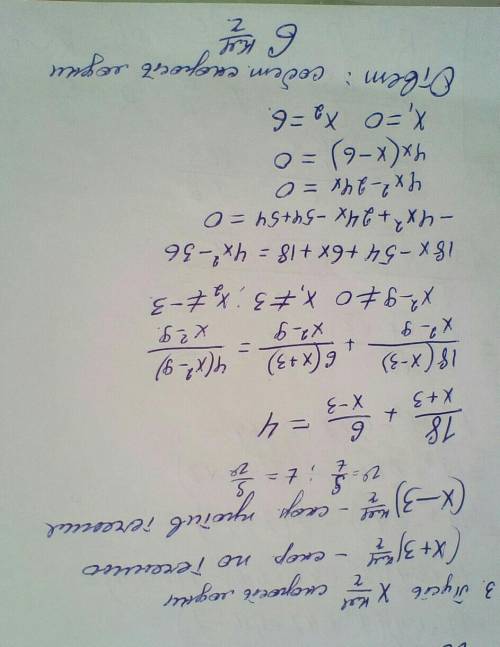 3. Пусть x км/ч скорость лодки
(x+3) км/ч - скор. по течению
(x-3) км/ч - скор. против течения
v = S/t ; t = S/v
18/(x+3) + 6/(x-3) = 4
18(x-3)/(x²-9) + 6(x+3)/(x²-9) = 4(x²-9)/(x²-9)
x²-9 ≠ 0 x₁ ≠ 3 ; x₂ ≠ -3
18x - 54 + 6x + 18 = 4x² - 36
-4x² + 24x - 54 + 54 = 0
4x² - 24x = 0
4x(x-6) = 0
x₁ = 0 x₂ = 6
Ответ: собст. скорость лодки
6 км/ч